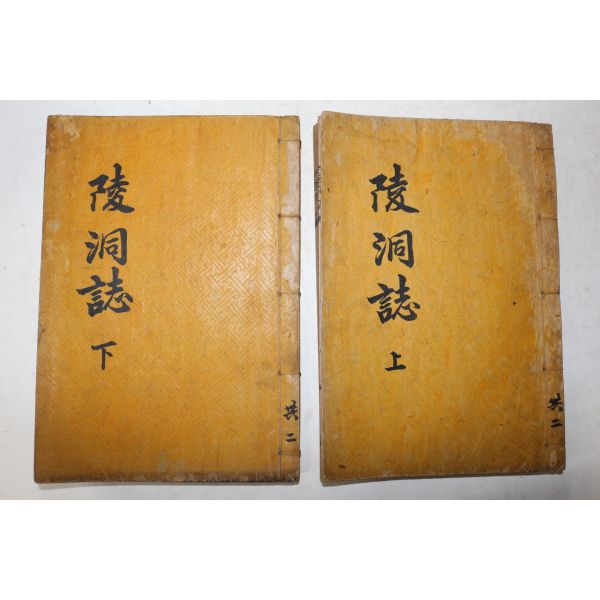 陵洞誌 上
共二
陵洞誌 下
共二